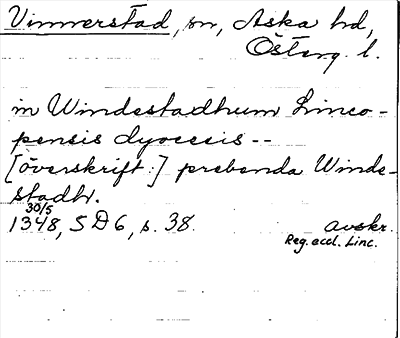 Vinnerstad, sn, Aska hd,
Österg. l.
in Windestadhum Linco-
pensis dyocesis --
[överskrift:] prebenda Winde-
stadh.
30/5
1348, SD6, s. 38. avskr.
Reg. eccl. Linc.